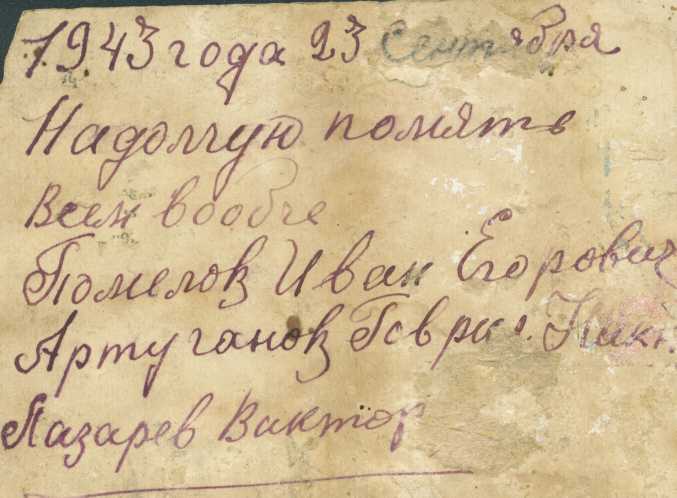 1943 года 23 Сентября
Надолгую помять
Всем вообче
Помелов Иван Егорович
Артуганов
Лазарев Виктор